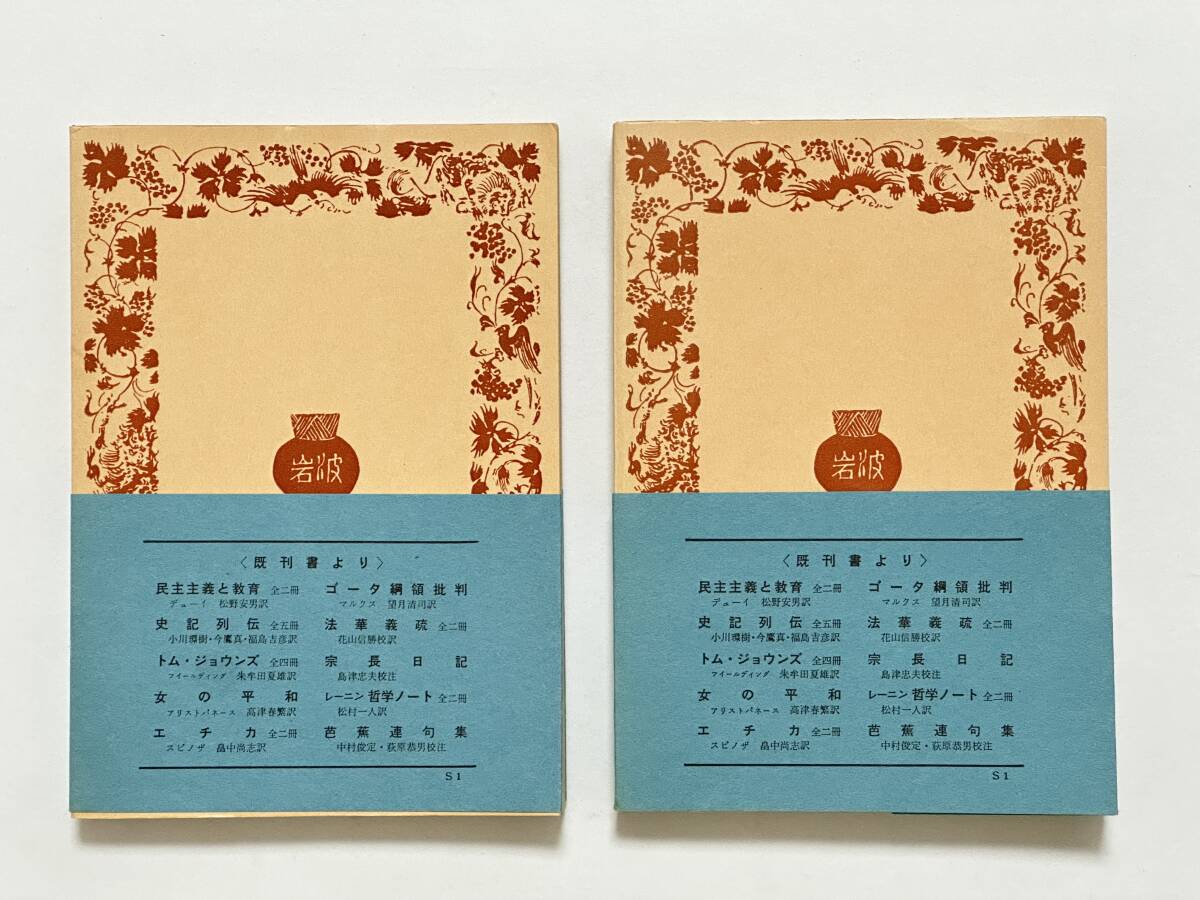 岩波
〈既刊書より〉
民主主義と教育 全二冊 ゴータ綱領批判
デューイ 松野安男訳 マルクス 望月清司訳
史記列伝 全五冊 法華義疏 全二冊
小川環樹・今鷹真・福島吉彦訳 花山信勝校訳
トム・ジョウンズ 全四冊 宗長日記
フィールディング 朱牟田夏雄訳 島津忠夫校注
女の平和 レーニン 哲学ノート 全二冊
アリストパネース 高津春繁訳 松村一人訳
エチカ 全二冊 芭蕉連句集
スピノザ 畠中尚志訳 中村俊定・萩原恭男校注
S1
岩波
〈既刊書より〉
民主主義と教育 全二冊 ゴータ綱領批判
デューイ 松野安男訳 マルクス 望月清司訳
史記列伝 全五冊 法華義疏 全二冊
小川環樹・今鷹真・福島吉彦訳 花山信勝校訳
トム・ジョウンズ 全四冊 宗長日記
フィールディング 朱牟田夏雄訳 島津忠夫校注
女の平和 レーニン 哲学ノート 全二冊
アリストパネース 高津春繁訳 松村一人訳
エチカ 全二冊 芭蕉連句集
スピノザ 畠中尚志訳 中村俊定・萩原恭男校注
S1